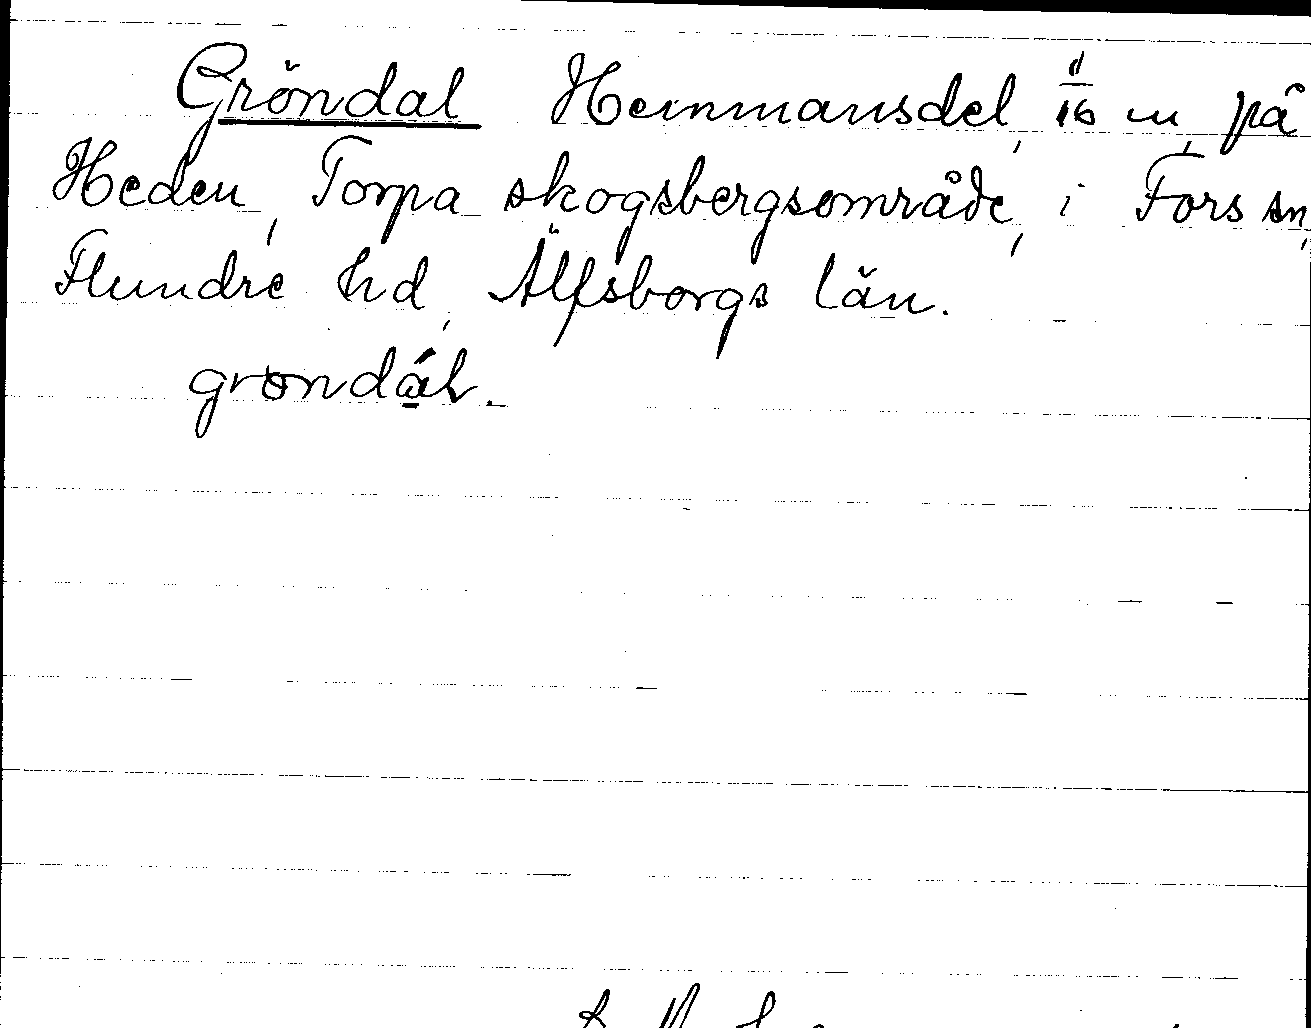 Gröndal Hemmansdel, 1/16 m, på
Heden, Torpa skogsbergsområde, i Fors sn,
Flundre hd, Älfsborgs län.
grondál.